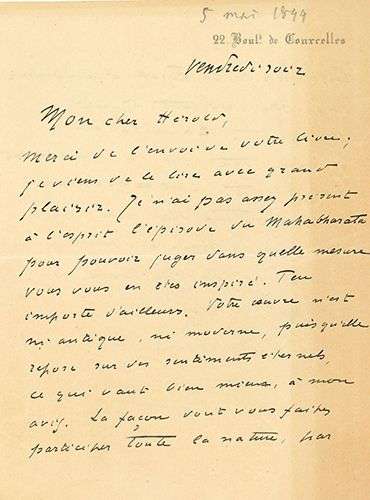 5 mai 1899
22. Boulᵈ. de Courcelles
Vendredi soir
Mon cher Hérold,
Merci de l'envoi de votre livre;
je viens de le lire avec grand
plaisir. Je n'ai pas assez présent
à l'esprit l'épisode du Mahabharata
pour pouvoir juger dans quelle mesure
vous vous en êtes inspiré. Peu
importe d'ailleurs. Votre œuvre n'est
ni antique, ni moderne, puisqu'elle
repose sur des sentiments éternels,
ce qui vaut bien mieux, à mon
avis. La façon dont vous faites
participer toute la nature, par